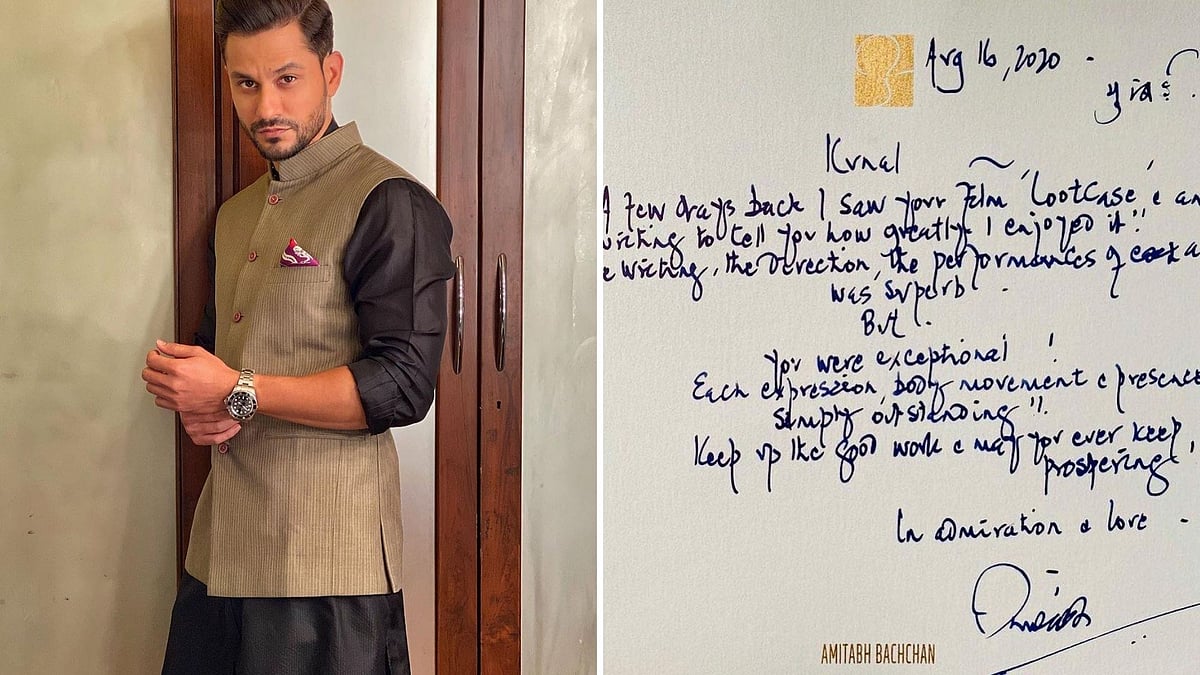 Aug 16, 2020 -
Kunal
A few days back I saw your Film 'Lootcase' & am
writing to tell you how greatly I enjoyed it !!
e writing, the direction, the performances of each a
was superb .
But .
you were exceptional !
Each expression, body movement & presence
simply outstanding !!
Keep up the good work & may you ever keep
prospering !
In admiration & love -
AMITABH BACHCHAN